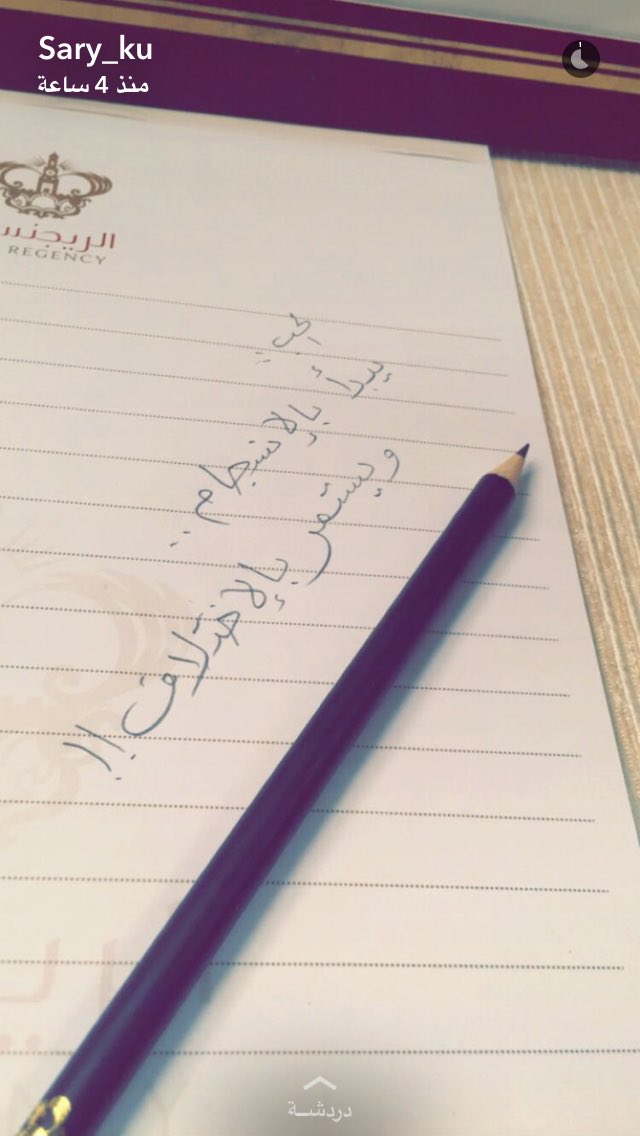 Sary_ku
منذ 4 ساعة
الريجنس
REGENCY
الحب ..
يبدأ بالإنسجام ..
ويستمر بالإختلاف !!
دردشة